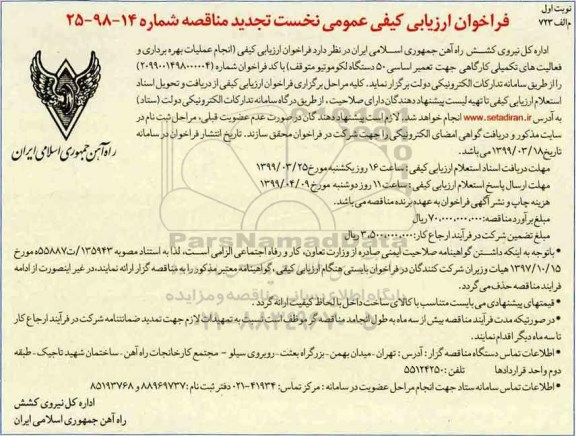 نوبت اول
م الف ۷۲۳
فراخوان ارزیابی کیفی عمومی نخست تجدید مناقصه شماره ۱۴-۹۸-۲۵
اداره کل نیروی کشش راه آهن جمهوری اسلامی ایران در نظر دارد فراخوان ارزیابی کیفی (انجام عملیات بهره برداری و
فعالیت های تکمیلی کارگاهی جهت تعمیر اساسی ۵۰ دستگاه لکوموتیو متوقف) با کد فراخوان شماره (۲۰۹۹۰۰۱۴۹۸۰۰۰۰۰۴)
را از طریق سامانه تدارکات الکترونیکی دولت برگزار نماید. کلیه مراحل برگزاری فراخوان ارزیابی کیفی از دریافت و تحویل اسناد
استعلام ارزیابی کیفی تا تهیه لیست پیشنهاد دهندگان دارای صلاحیت، از طریق درگاه سامانه تدارکات الکترونیکی دولت (ستاد)
به آدرس www.setadiran.ir انجام خواهد شد. لازم است پیشنهاد دهندگان در صورت عدم عضویت قبلی، مراحل ثبت نام در
سایت مذکور و دریافت گواهی امضای الکترونیکی را جهت شرکت در فراخوان محقق سازند. تاریخ انتشار فراخوان در سامانه
تاریخ ۱۳۹۹/۰۳/۱۸ می باشد.
راه آهن جمهوری اسلامی ایران
مهلت دریافت اسناد استعلام ارزیابی کیفی: ساعت ۱۶ روز یکشنبه مورخ ۱۳۹۹/۰۳/۲۵
مهلت ارسال پاسخ استعلام ارزیابی کیفی: ساعت ۱۱ روز دوشنبه مورخ ۱۳۹۹/۰۴/۰۹
هزینه چاپ و نشر آگهی فراخوان به عهده برنده مناقصه می باشد.
مبلغ برآورد مناقصه: ۷۰.۰۰۰.۰۰۰.۰۰۰ ریال
مبلغ تضمین شرکت در فرآیند ارجاع کار: ۳.۵۰۰.۰۰۰.۰۰۰ ریال
• با توجه به اینکه داشتن گواهینامه صلاحیت ایمنی صادره از وزارت تعاون، کار و رفاه اجتماعی الزامی است، لذا به استناد مصوبه ۱۳۵۹۴۳/ت۵۵۸۸۷ه مورخ
۱۳۹۷/۱۰/۱۵ هیات وزیران شرکت کنندگان در فراخوان بایستی هنگام ارزیابی کیفی، گواهینامه معتبر مذکور را به مناقصه گزار ارائه نمایند، در غیر اینصورت از ادامه
فرایند مناقصه حذف می گردد.
• قیمتهای پیشنهادی می بایست متناسب با کالای ساخت داخل با لحاظ کیفیت ارائه گردد.
• در صورتیکه مدت فرآیند مناقصه بیش از سه ماه به طول انجامد مناقصه گر موظف است نسبت به تمهیدات لازم جهت تمدید ضمانتنامه شرکت در فرآیند ارجاع کار
تا سه ماه دیگر اقدام نمایند.
• اطلاعات تماس دستگاه مناقصه گزار: آدرس: تهران - میدان بهمن - بزرگراه بعثت - روبروی سیلو - مجتمع کارخانجات راه آهن - ساختمان شهید تاجیک - طبقه
دوم واحد قراردادها تلفن: ۵۵۱۲۴۲۵۰
• اطلاعات تماس سامانه ستاد جهت انجام مراحل عضویت در سامانه: مرکز تماس: ۴۱۹۳۴-۰۲۱ دفتر ثبت نام: ۸۸۹۶۹۷۳۷ و ۸۵۱۹۳۷۶۸
اداره کل نیروی کشش
راه آهن جمهوری اسلامی ایران
ParsNamadData